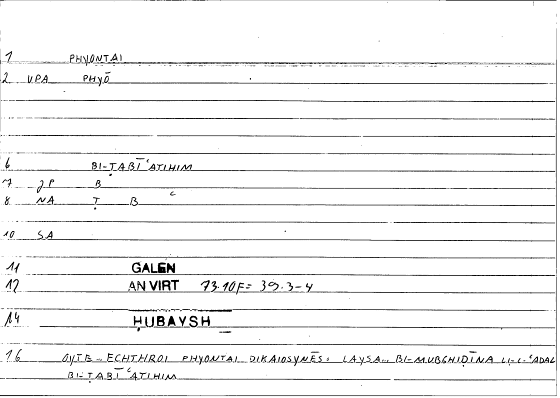 1 PHYONTAI
2 VPA PHYŌ
6 BI-ṬABĪʿATIHIM
7 JP B
8 NA Ṭ B ʿ
10 SA
11 GALEN
12 AN VIRT 73.10F= 39.3-4
14 ḤUBAYSH
16 OYTE- ECHTHROI PHYONTAI DIKAIOSYNĒS: LAYSA.. BI-MUBGHIḌĪNA LI-L-ʿADAL
BI-ṬABĪʿATIHIM